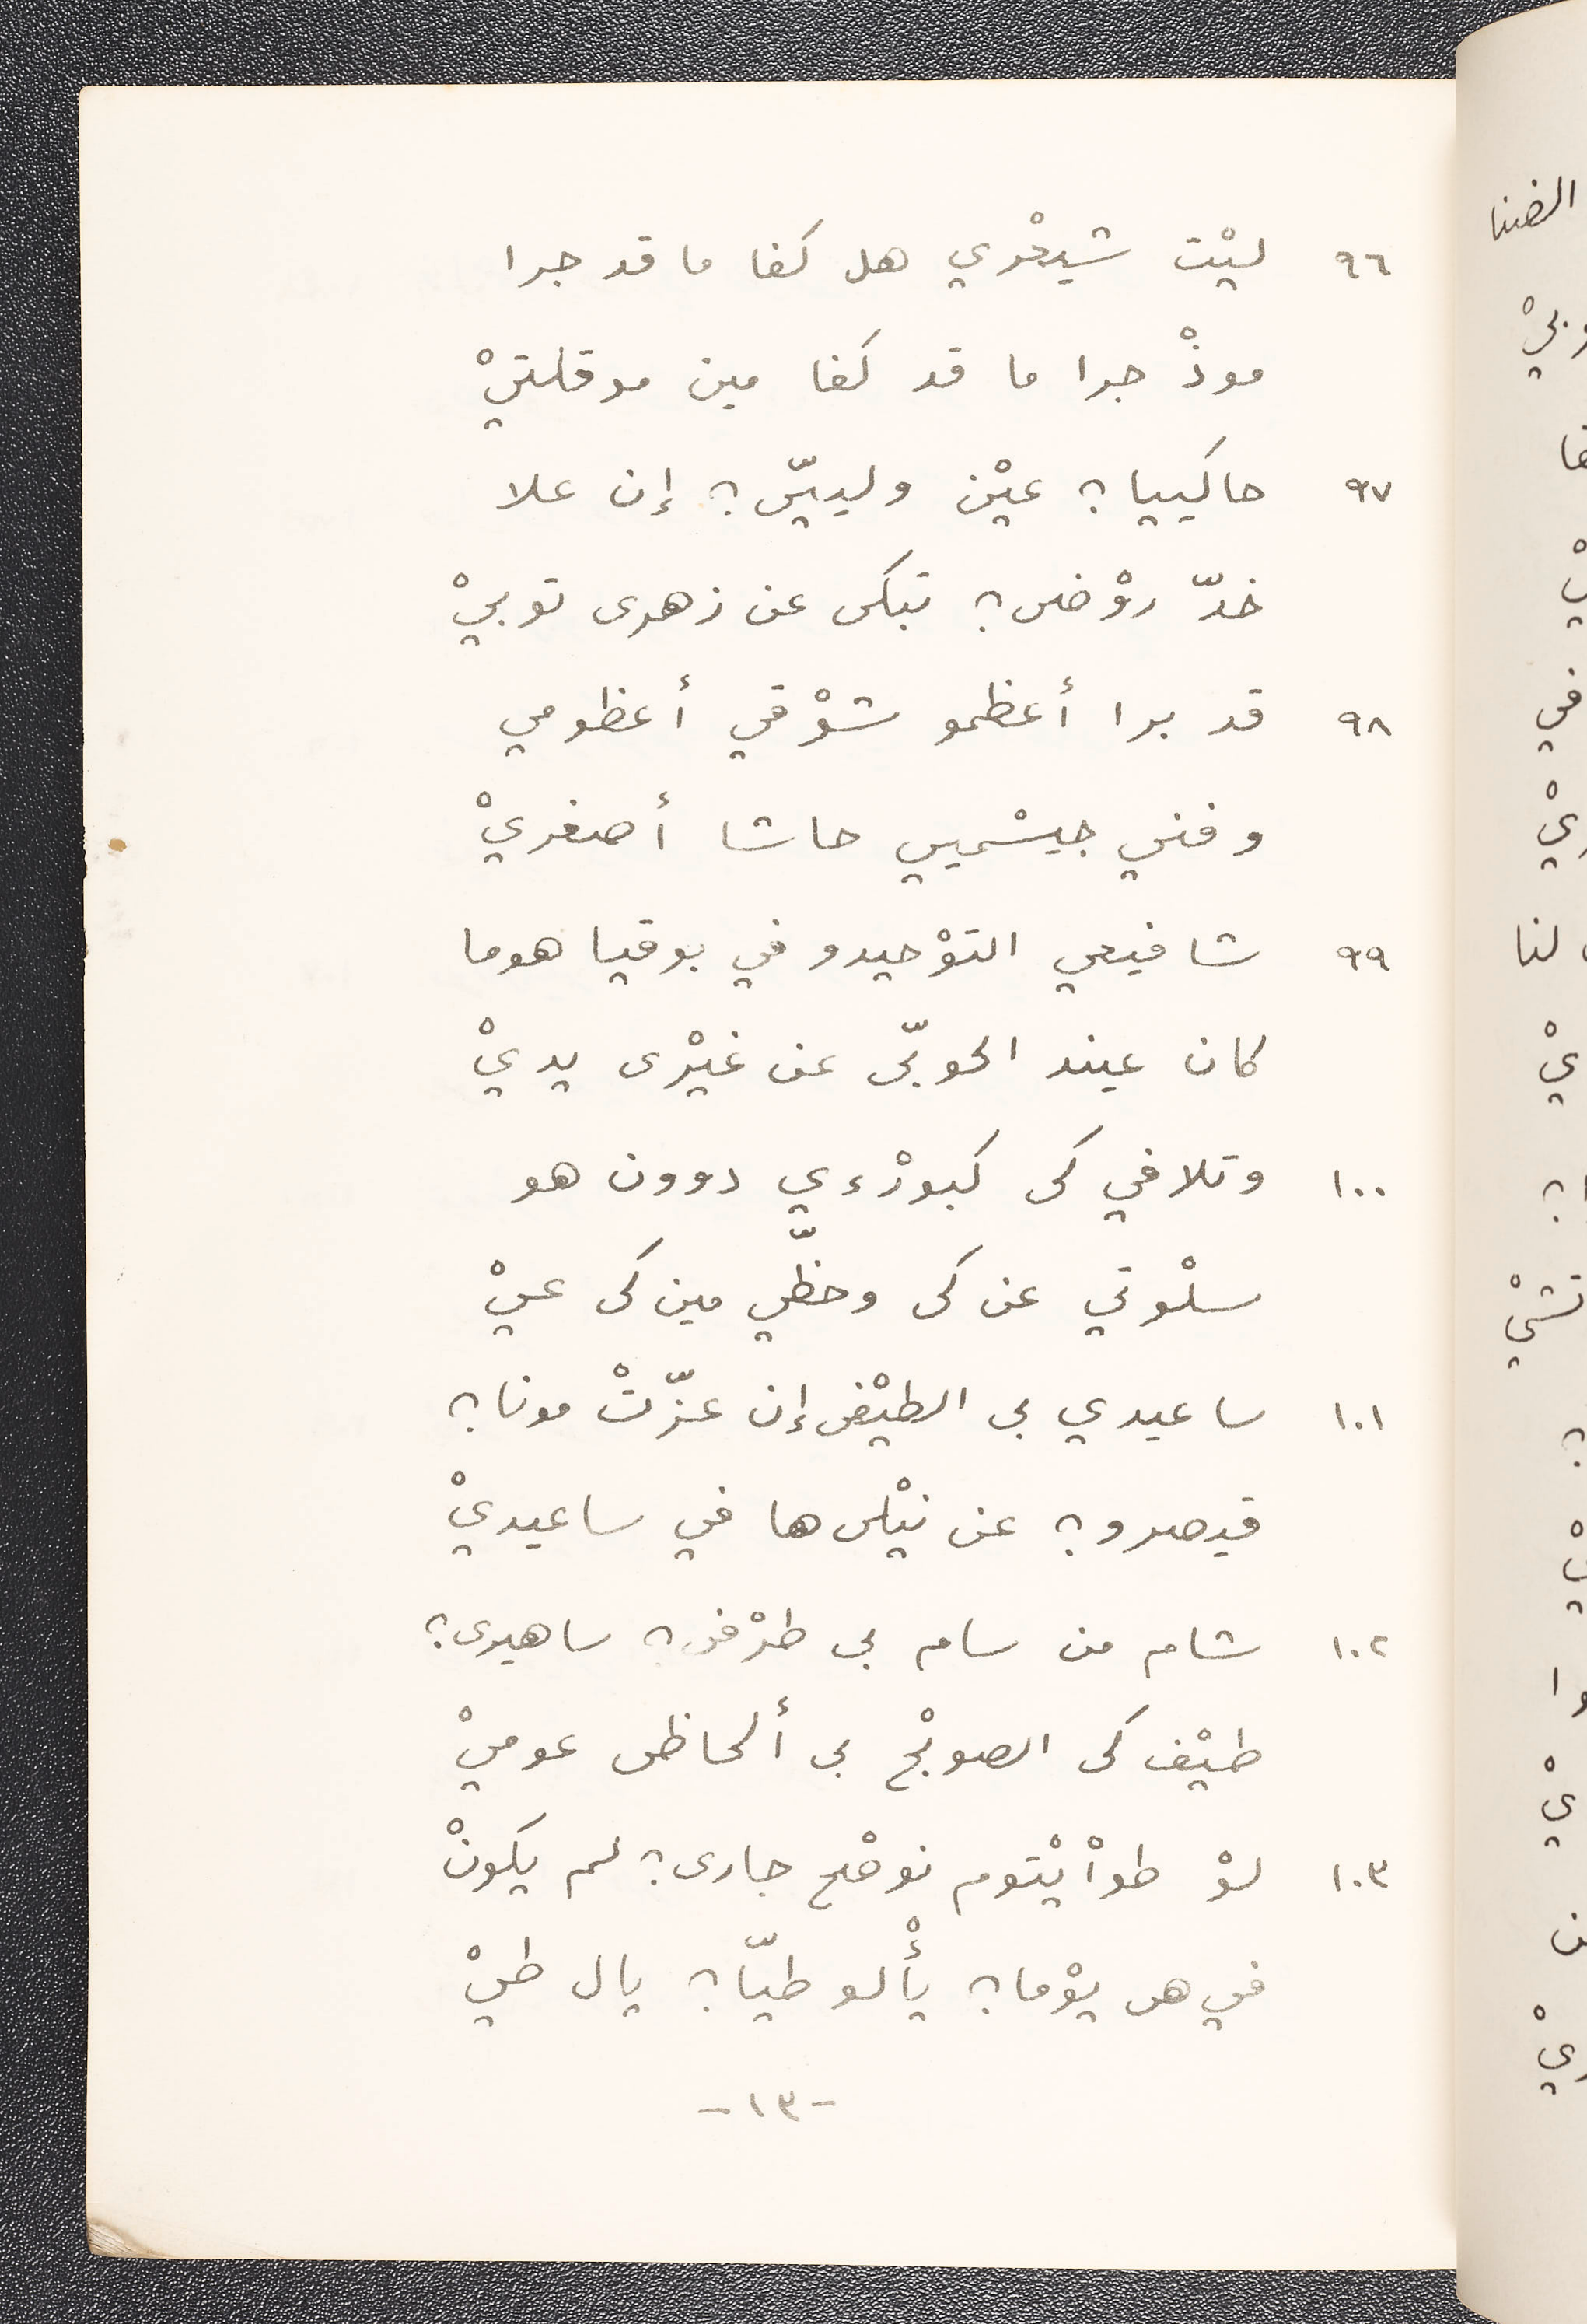 ٩٦ ليْت شيعْري هل كفا ما قد جرا
موذْ جرا ما قد كفا مين موقلتيْ
٩٧ حاكييا؟ عيْن وليـيّ؟ إن علا
خدّ روْض؟ تبكى عن زهرى توبيْ
٩٨ قد برا أعظمو شوْقي أعظومي
وفني جيسْميي حاشا أصغريْ
٩٩ شافيعي التوْحيدو في بوقيا هوما
كان عيند الحوبّى عن غيْرى يديْ
١٠٠ وتلافي كى كبورْءي دوون هو
سلْوتي عن كى وحظّي مين كى عيْ
١٠١ ساعيدي بى الطيْف إن عزّتْ مونا؟
قيصرو؟ عن نيْل ها في ساعيديْ
١٠٢ شام من سام بى طرْف؟ ساهيرى؟
طيْف كى الصوبْح بى ألحاظ عوميْ
١٠٣ لوْ طواْيْتوم نوصْح جارى؟ لم يكونْ
في هى يوْما؟ يأْلو طيّا؟ يال طيْ
-١٣-
الضنا
في
لنا